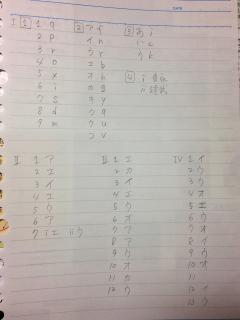 DATE
I 1 1 q 2 ア f 3 あ j
2 p イ n い c
3 r ウ r う k
4 o エ b
5 x オ h 4 i 責任
6 i カ g ii
7 s キ y
8 d ク a
9 m ケ u
コ v
II 1 ア III 1 エ IV 1 イ
2 エ 2 カ 2 ウ
3 イ 3 イ 3 ウ
4 エ 4 エ 4 オ
5 ウ 5 ウ 5 エ
6 ア 6 オ 6 ウ
7 i エ ii ウ 7 ア 7 オ
8 ア 8 イ
9 ウ 9 ウ
10 オ 10 オ
11 カ 11
12 ウ 12 イ
13 ウ